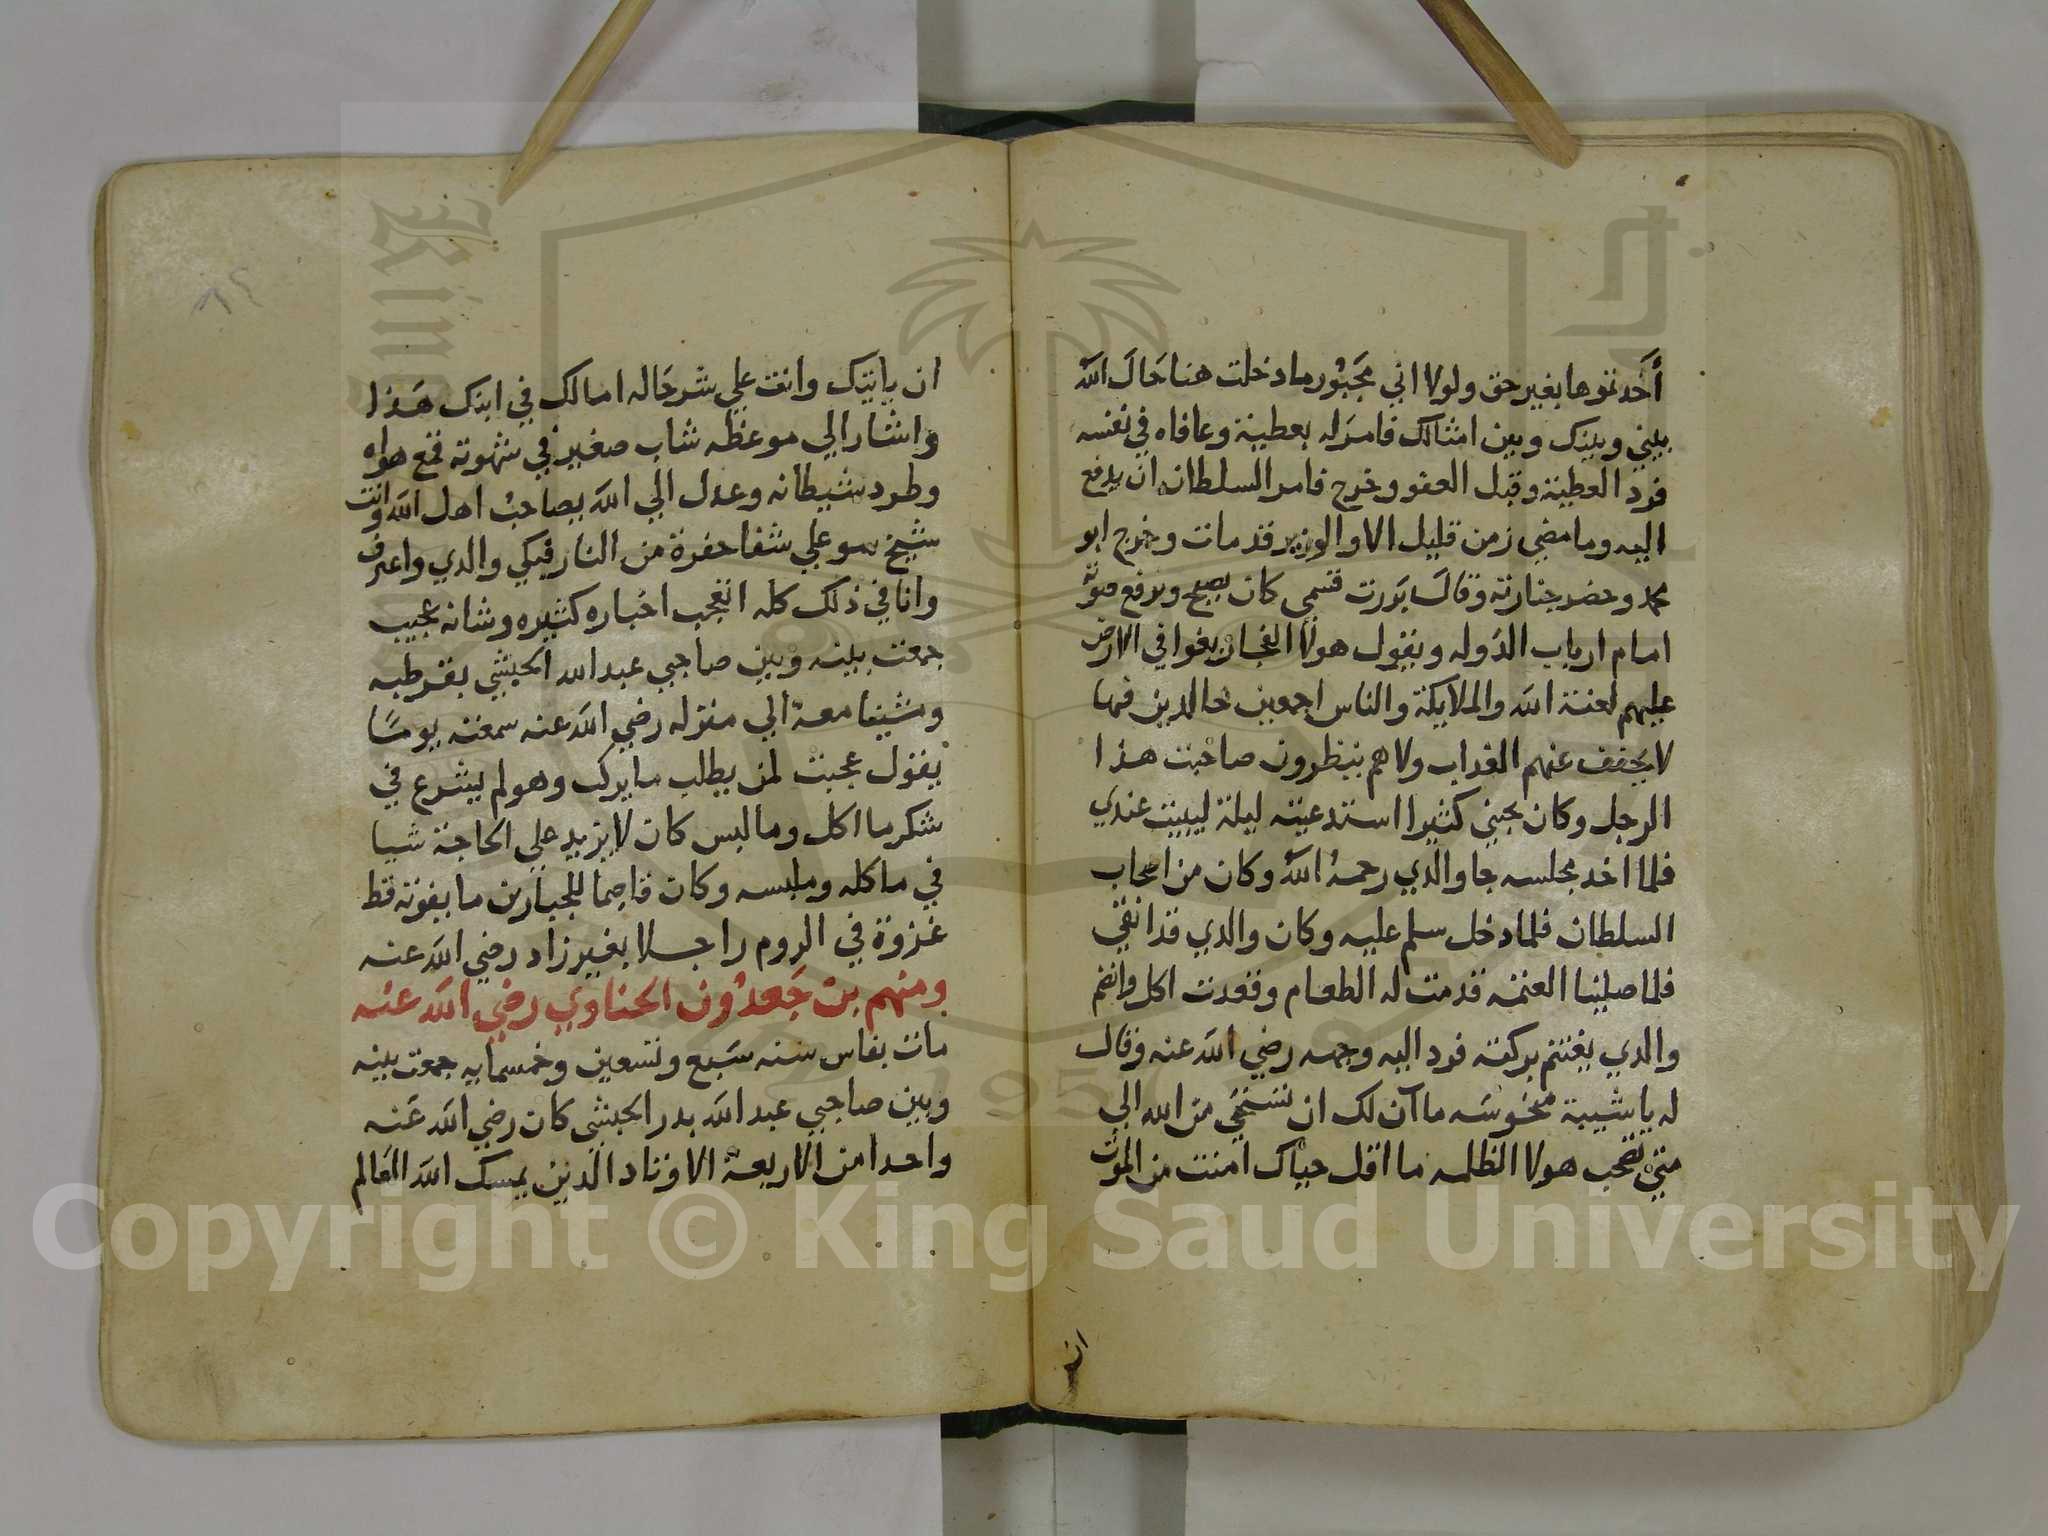 أخدتموها بغير حق ولولا اني مجبور ما دخلت هنا حال الله
بيني وبينك وبين امثالك فامر له بعطية وعافاه في نفسه
فرد العطية وقبل العفو وخرج فامر السلطان ان يدفع
اليه وما مضي زمن قليل الا والوزير قد مات وخرج ابو
محمد وحضر جنازته وقال بررت قسمي كان يصيح ويرفع صوته
امام ارباب الدوله ويقول هولا الفجار بغوا في الارض
عليهم لعنة الله والملايكة والناس اجمعين خالدين فيها
لا يخفف عنهم العذاب ولا هم ينظرون صاحبت هذا
الرجل وكان يحبني كثيرا استدعيته ليلة ليبيت عندي
فلما اخد مجلسه جا والدي رحمه الله وكان من اصحاب
السلطان فلما دخل سلم عليه وكان والدي قد انقي
فلما صلينا العتمه قدمت له الطعام وقعدت اكل وانضم
والدي يغتنم بركته فرد اليه وجهه رضي الله عنه وقال
له يا شيبة منحوسه ما آن لك ان تستحي من الله الي
متي تصحب هولا الظلمه ما اقل حياك امنت من الموت
ان
ان ياتيك وانت علي شر حاله امالك في ابنك هذا
واشار الي موعظه شاب صغير في شهوته قمع هواه
وطرد شيطانه وعدل الي الله يصاحب اهل الله وانت
شيخ سو علي شفا حفرة من النار فبكي والدي واعترف
وانا في ذلك كله اتعجب اخباره كثيره وشانه عجيب
جمعت بينه وبين صاحبي عبد الله الحبشي بقرطبه
ومشينا معه الي منزله رضي الله عنه سمعته يوما
يقول عجبت لمن يطلب ما يركب وهو لم يشرع في
شكر ما اكل وما لبس كان لا يزيد علي الحاجة شيا
في ماكله وملبسه وكان قاصما للجبارين ما يفوته قط
غزوة في الروم راجلا بغير زاد رضي الله عنه
ومنهم بن جعدون الحناوي رضي الله عنه
مات بفاس سنه سبع وتسعين وخمسمايه جمعت بينه
وبين صاحبي عبد الله بدر الحبشي كان رضي الله عنه
واحدا من الاربعة الاوتاد الذين يمسك الله العالم
Copyright © King Saud University
1957